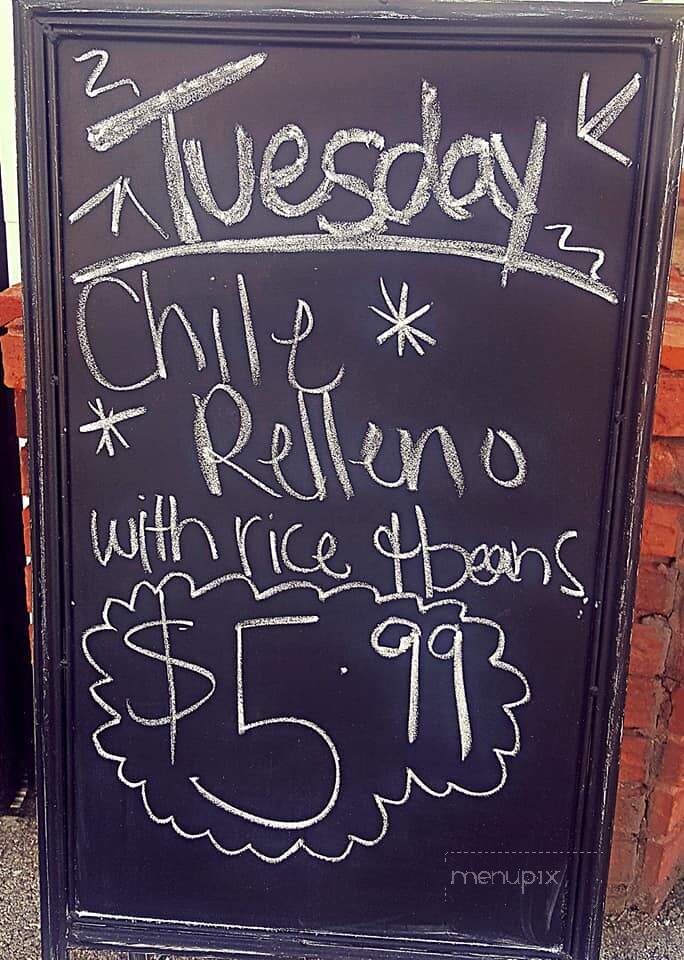 Tuesday
Chile
Relleno
with rice & beans.
$5.99
menupix